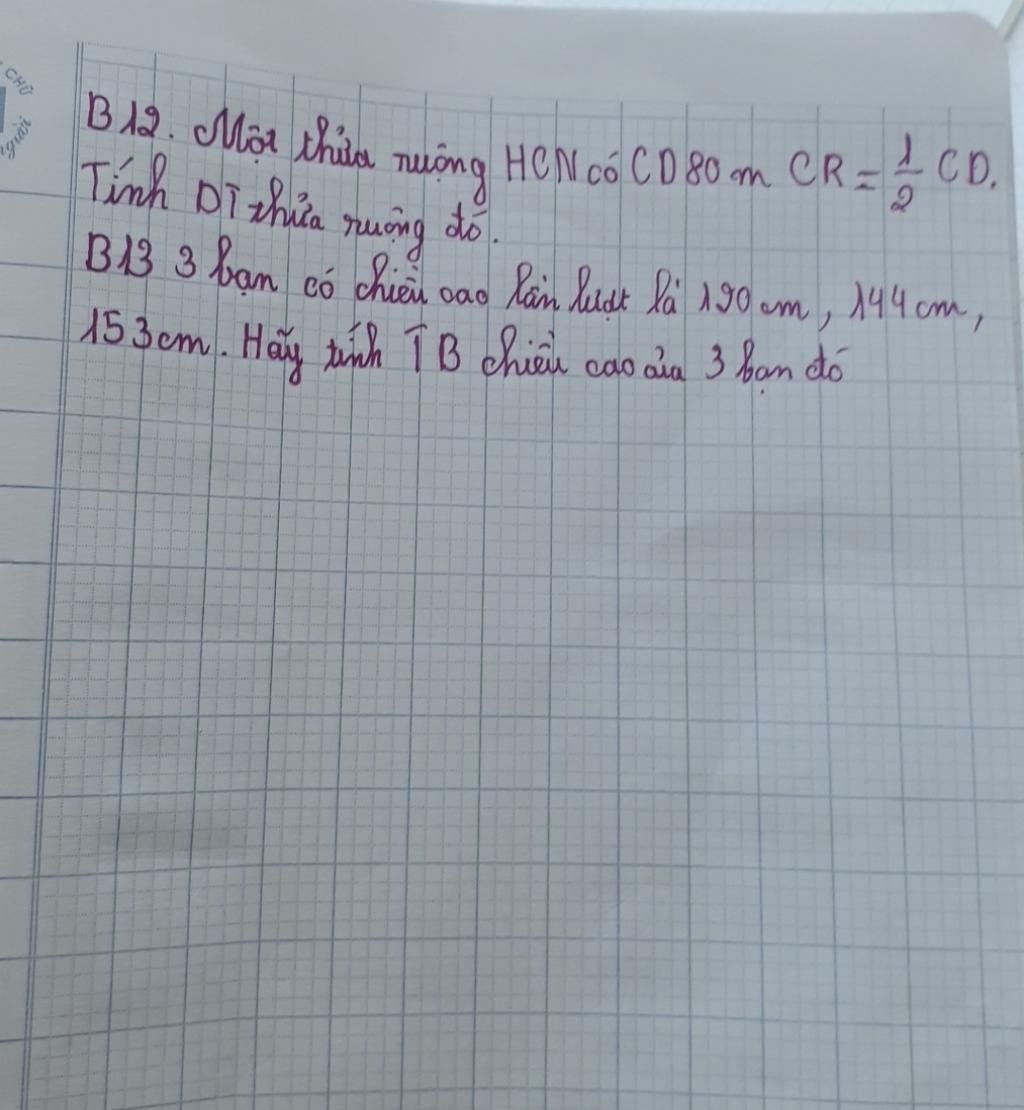 CHỮ
người
B12. Một thửa ruộng HCN có CD 80 m CR = 1/2 CD.
Tính DT thửa ruộng đó.
B13 3 bạn có chiều cao lần lượt là 190 cm, 144 cm,
153 cm. Hãy tính TB chiều cao của 3 bạn đó